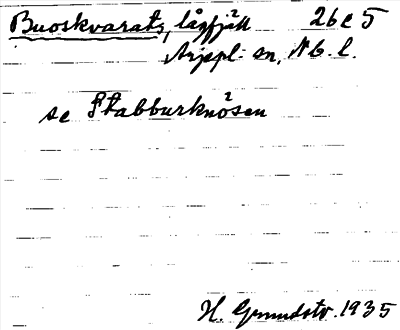 Buoskvarats, lågfjäll 26e5
Arjepl. sn, Nb. l.
se Stabburknösen
H. Grundstr. 1935